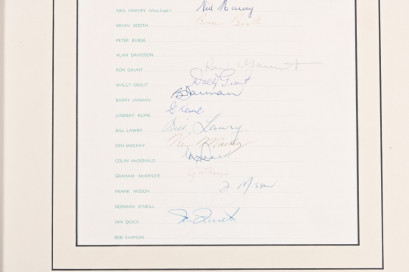 NEIL HARVEY Neil Harvey
BRIAN BOOTH Brian Booth
PETER BURGE
ALAN DAVIDSON
RON GAUNT Ron Gaunt
WALLY GROUT Wally Grout
BARRY JARMAN B Jarman
LINDSAY KLINE Kline
BILL LAWRY Bill Lawry
KEN MACKAY Ken Mackay
COLIN McDONALD
GRAHAM McKENZIE
FRANK MISSON F Misson
NORMAN O'NEILL
IAN QUICK
BOB SIMPSON